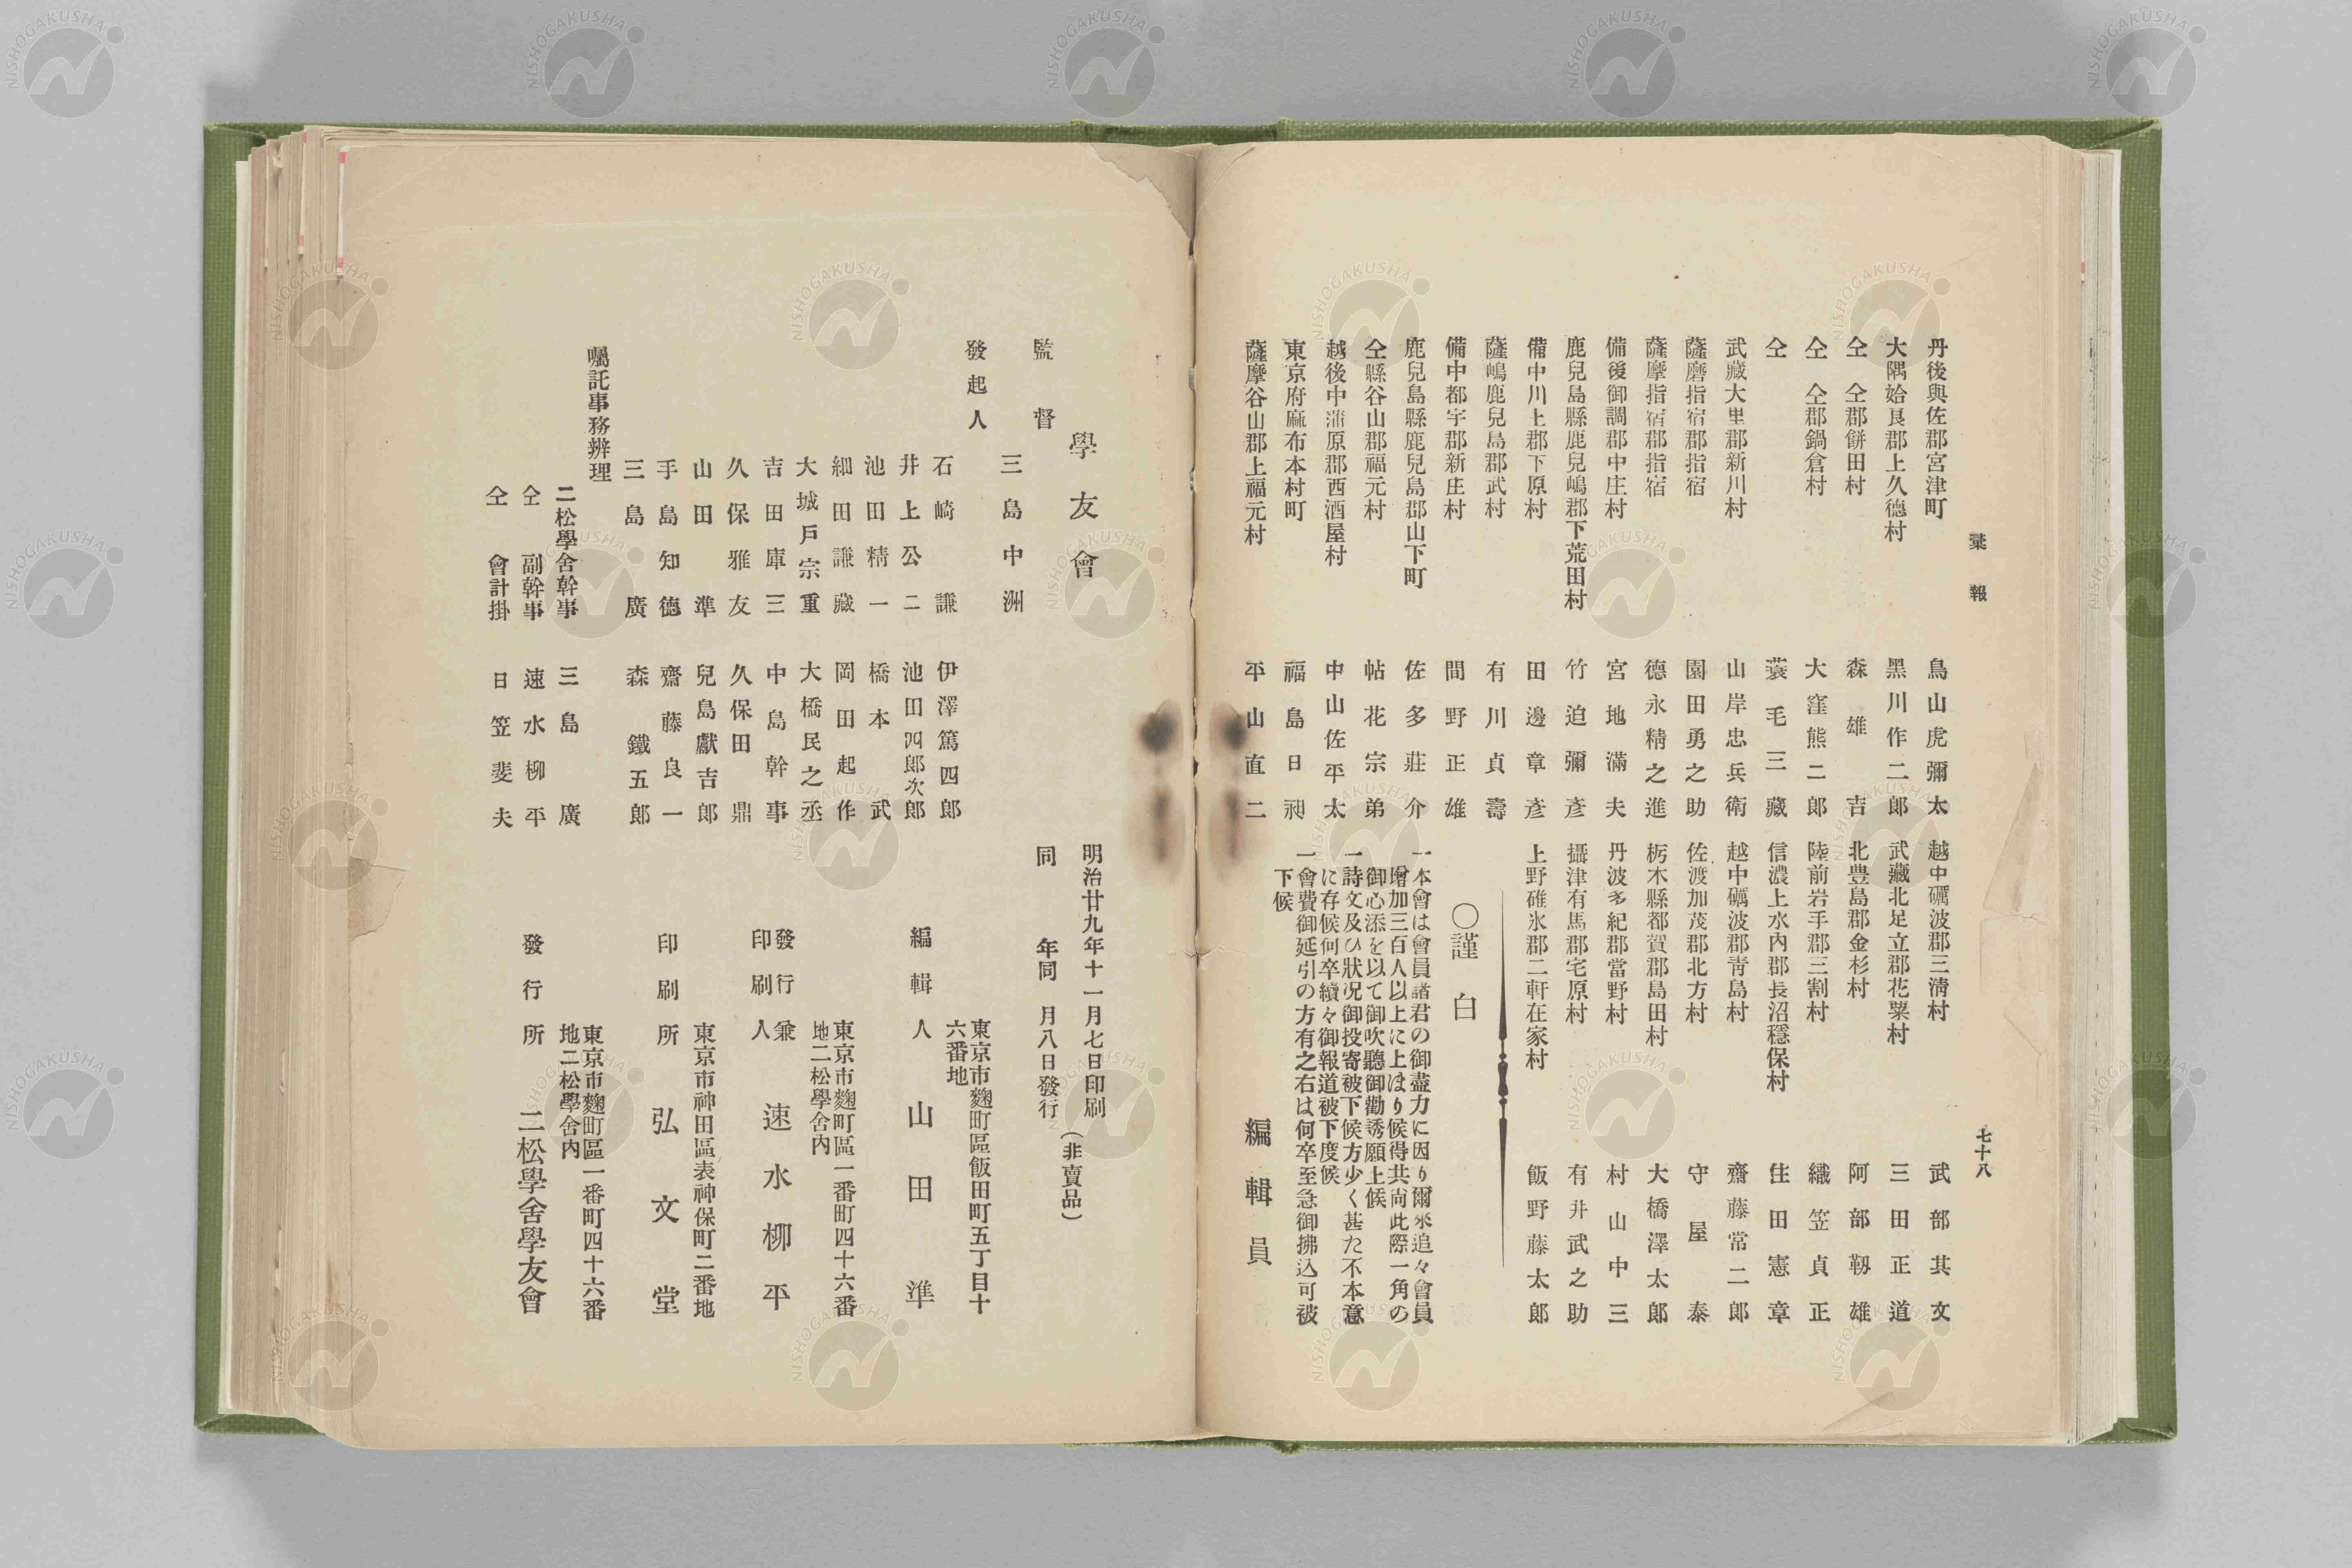 彙報
七十八
丹後與佐郡宮津町　鳥山虎彌太
大隅姶良郡上久德村　黑川作二郎
仝　仝郡餅田村　森雄吉
仝　仝郡鍋倉村　大窪熊二郎
仝　蓑毛三藏
武藏大里郡新川村　山岸忠兵衛
薩磨指宿郡指宿　園田勇之助
薩摩指宿郡指宿　德永精之進
備後御調郡中庄村　宮地滿夫
鹿兒島縣鹿兒嶋郡下荒田村　竹迫彌彥
備中川上郡下原村　田邊章彥
薩嶋鹿兒島郡武村　有川貞壽
備中都宇郡新庄村　間野正雄
鹿兒島縣鹿兒島郡山下町　佐多莊介
仝縣谷山郡福元村　帖花宗弟
越後中蒲原郡西酒屋村　中山佐平太
東京府麻布本村町　福島日昶
薩摩谷山郡上福元村　平山直二
越中礪波郡三淸村　武部其文
武藏北足立郡花粟村　三田正道
北豊島郡金杉村　阿部靱雄
陸前岩手郡三割村　織笠貞正
信濃上水內郡長沼穩保村　住田憲章
越中礪波郡靑島村　齋藤常二郎
佐渡加茂郡北方村　守屋泰
栃木縣都賀郡島田村　大橋澤太郎
丹波多紀郡當野村　村山中三
攝津有馬郡宅原村　有井武之助
上野碓氷郡二軒在家村　飯野藤太郎
〇謹白
一本會は會員諸君の御盡力に因り爾來追々會員
增加三百人以上に上ほり候得共尚此際一角の
御心添を以て御吹聽御勸誘願上候
一詩文及ひ狀况御投寄被下候方少く甚た不本意
に存候何卒續々御報道被下度候
一會費御延引の方有之右は何卒至急御拂込可被
下候
編輯員
學友會
監督
三島中洲
發起人
石崎謙　伊澤篤四郎
井上公二　池田四郎次郎
池田精一　橋本武
細田謙藏　岡田起作
大城戶宗重　大橋民之丞
吉田庫三　中島幹事
久保雅友　久保田鼎
山田準　兒島獻吉郎
手島知德　齋藤良一
三島廣　森鐵五郎
囑託事務辨理
二松學舍幹事　三島廣
仝　副幹事　速水柳平
仝　會計掛　日笠斐夫
明治廿九年十一月七日印刷
（非賣品）
同　年同　月八日發行
東京市麴町區飯田町五丁目十
六番地
編輯人　山田準
東京市麴町區一番町四十六番
地二松學舍內
發行兼
印刷人　速水柳平
東京市神田區表神保町二番地
印刷所　弘文堂
東京市麴町區一番町四十六番
地二松學舍內
發行所　二松學舍學友會